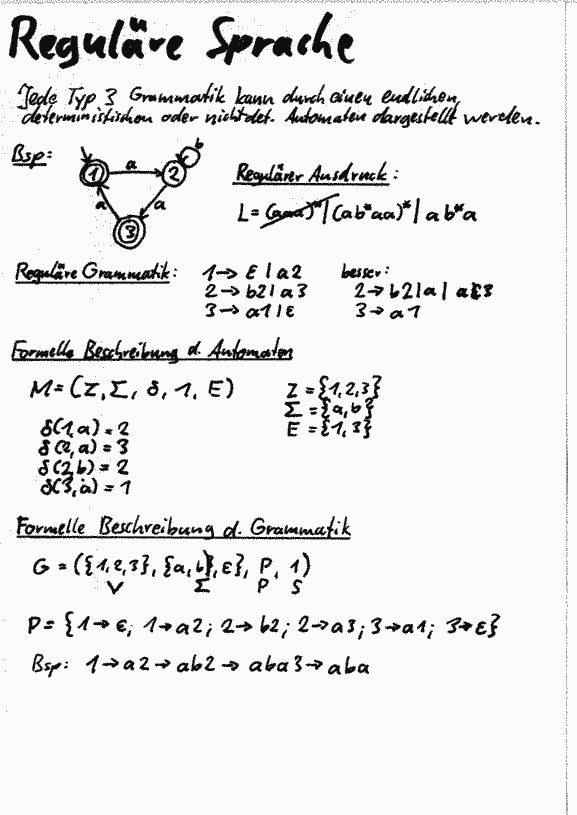 Reguläre Sprache
Jede Typ 3 Grammatik kann durch einen endlichen,
deterministischen oder nichtdet. Automaten dargestellt werden.
Bsp:
1 a 2 b
a a
3
Regulärer Ausdruck:
L = (aaa)* | (ab*aa)* | ab*a
Reguläre Grammatik:
1 → ε | a2
2 → b2 | a3
3 → a1 | ε
besser:
2 → b2 | a | a3
3 → a1
Formelle Beschreibung d. Automaten
M = (Z, Σ, δ, 1, E)
Z = {1,2,3}
Σ = {a,b}
E = {1,3}
δ(1,a) = 2
δ(2,a) = 3
δ(2,b) = 2
δ(3,a) = 1
Formelle Beschreibung d. Grammatik
G = ({1,2,3}, {a,b}, ε}, P, 1)
V Σ P S
P = {1 → ε, 1 → a2; 2 → b2; 2 → a3; 3 → a1; 3 → ε}
Bsp: 1 → a2 → ab2 → aba3 → aba